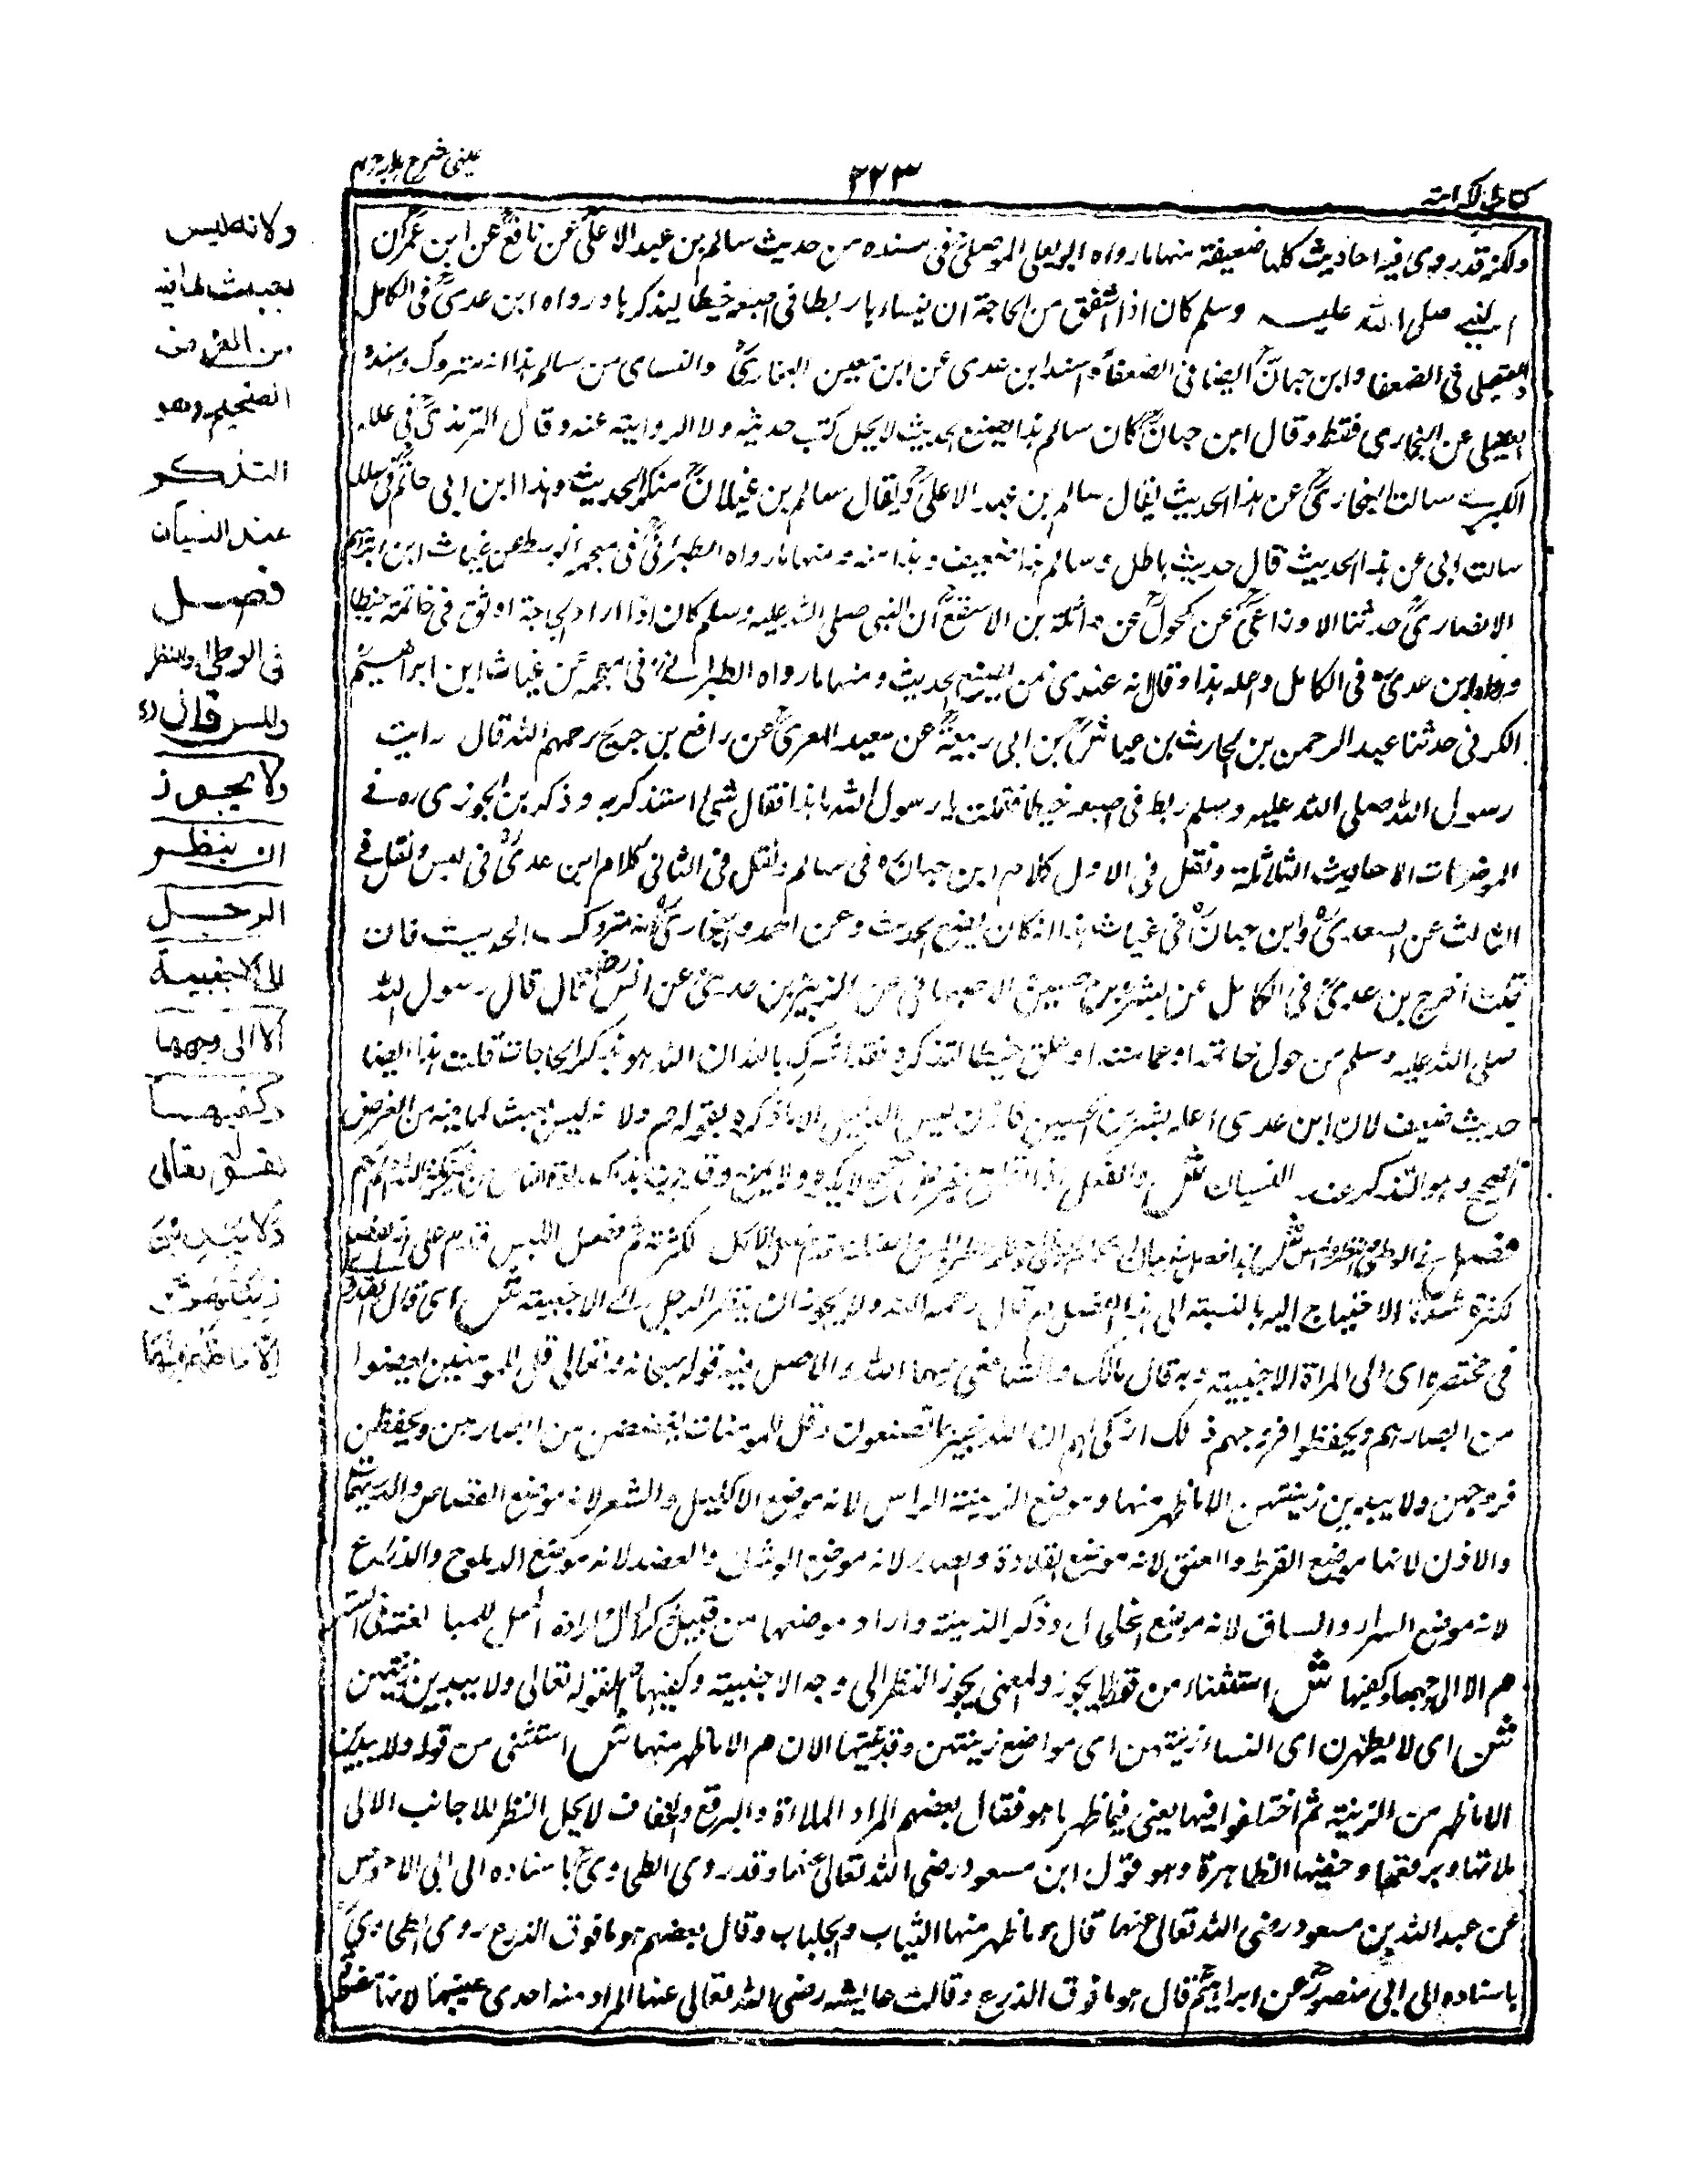 كتاب الكراهية
٢٢٣
عينى شرح هدايه
ولكنه قد روى فيه احاديث كلها ضعيفة منها ما رواه ابو يعلى الموصلىؒ فى مسنده من حديث سالم بن عبد الاعلىؒ عن نافعؒ عن ابن عمرؓ ان
النبى صلى الله عليه وسلم كان اذا اشفق من الحاجة ان ينساها ربط فى اصبعه خيطا ليذكرها ورواه ابن عدىؒ فى الكامل
والعقيلى فى الضعفا وابن حبانؒ ايضا فى الضعفاء واسند ابن عدى عن ابن معين البخارىؒ والنساى من سالم هذا انه متروك واسنده
العقيلى عن البخارى فقط وقال ابن حبانؒ كان سالم هذا يضع الحديث لا يحل كتب حديثه ولا الرواية عنه وقال الترمذىؒ فى علله
الكبرى سالت البخارىؒ عن هذا الحديث فقال سالم بن عبد الاعلىؒ ويقال سالم بن غيلانؒ منكر الحديث وهذا ابن ابى حاتمؒ فى علله
سالت ابى عن هذا الحديث قال حديث باطل وسالم هذا ضعيف وهذا منه ومنها ما رواه الطبرانىؒ فى معجمه الوسط عن غياث ابن ابراهيم
الانصارىؒ حدثنا الاوزاعىؒ عن مكحولؒ عن واثلة بن الاسقعؓ ان النبى صلى الله عليه وسلم كان اذا اراد الحاجة اوثق فى خاتمه خيطا
ورواه ابن عدىؒ فى الكامل واعله بهذا وقال انه عندى من يضع الحديث ومنها ما رواه الطبرانىؒ فى معجمه عن غياث ابن ابراهيمؒ
الكوفى حدثنا عبد الرحمن بن الحارث بن عياشؒ بن ابى ربيعةؒ عن سعيد المقرىؒ عن رافع بن خديج رحمهم الله قال رايت
رسول الله صلى الله عليه وسلم ربط فى اصبعه خيطا فقلت يا رسول الله ما هذا فقال شئ استذكر به وذكر بن الجوزى ره فى
الموضوعات الاحاديث الثلاثة ونقل فى الاول كلام ابن حبانؒ فى سالم ونقل فى الثانى كلام ابن عدىؒ فى بعس ونقل فى
الثالث عن السعدىؒ وابن حبانؒ فى غياث هذا انه كان يضع الحديث وعن احمد والبخارىؒ انه متروك الحديث فان
قلت اخرج بن عدىؒ فى الكامل عن بشر بن حسين الاصبهانى عن الزبير بن عدىؒ عن انسؓ قال قال رسول الله
صلى الله عليه وسلم من حول خاتمه او عمامته او علق خيطا لتذكره فقد اشرك بالله ان الله هو يذكر الحاجات قلت هذا ايضا
حديث ضعيف لان ابن عدى اعله بشر بن الحسين ليس الا ما ذكره بقوله م ولانه ليس بعبث لما فيه من الغرض
الصحيح وهو التذكر عند النسيان ش والفعل اذا
فصل فى الوطى والنظر واللمس ش لكثرته ثم فصل اللبس
لكثرة شدة الاحتياج اليه بالنسبة الى هذا الفصل م قال رحمه الله ولا يجوز ان ينظر الرجل الى الاجنبية ش اى قال القدورى
فى مختصره اى الى المراة الاجنبية وبه قال مالك والشافعى رحمهما الله والاصل فيه قوله سبحانه وتعالى قل للمومنين يغضوا
من ابصارهم ويحفظوا فروجهم ذلك ازكى لهم ان الله خبير بما تصنعون وقل للمومنات يغضضن من ابصارهن ويحفظن
فروجهن ولا يبدين زينتهن الا ما ظهر منها وموضع الزينة الراس لانه موضع الاكليل والشعر لانه موضع العقاص
والاذن لانها موضع القرط والعنق لانه موضع القلادة والصدر لانه موضع الوشاح والعضد لانه موضع الدملوج والذراع
لانه موضع السوار والساق لانه موضع الخلخال وذكر الزينة واراد موضعها من قبيل ذكر الحال وارادة المحل للمبالغة فى الستر
م الا الى وجهها وكفيها ش استثناء من قوله لا يجوز والمعنى يجوز النظر الى وجه الاجنبية وكفيها م لقوله تعالى ولا يبدين زينتهن
ش اى لا يظهرن اى النساء زينتهن اى مواضع زينتهن وقد بيناها الان م الا ما ظهر منها ش استثنى من قوله ولا يبدين
الا ما ظهر من الزينة ثم اختلفوا فيها يعنى فيما ظهر ما هو فقال بعضهم المراد الملاءة والبرقع والخفاف لا يحل النظر للاجانب الا الى
ملائتها وبرقعها وخفيها الظاهرة وهو قول ابن مسعود رضى الله تعالى عنهما وقد روى الطحاوىؒ باسناده الى ابى الاحوص
عن عبد الله بن مسعود رضى الله تعالى عنهما قال وما ظهر منها الثياب والجلباب وقال بعضهم هو ما فوق الذرع روى الطحاوىؒ
باسناده الى ابى منصورؒ عن ابراهيمؒ قال هو ما فوق الذرع وقالت عايشه رضى الله تعالى عنها المراد منه احدى عينيها لانها تضطر
ولانه ليس
بعبث لما فيه
من الغرض
الصحيح وهو
التذكر
عند النسيان
فصل
فى الوطى والنظر
واللمس قال
ولا يجوز
ان ينظر
الرجل
الى الاجنبية
الا الى وجهها
وكفيها
لقوله تعالى
ولا يبدين
زينتهن
الا ما ظهر منها